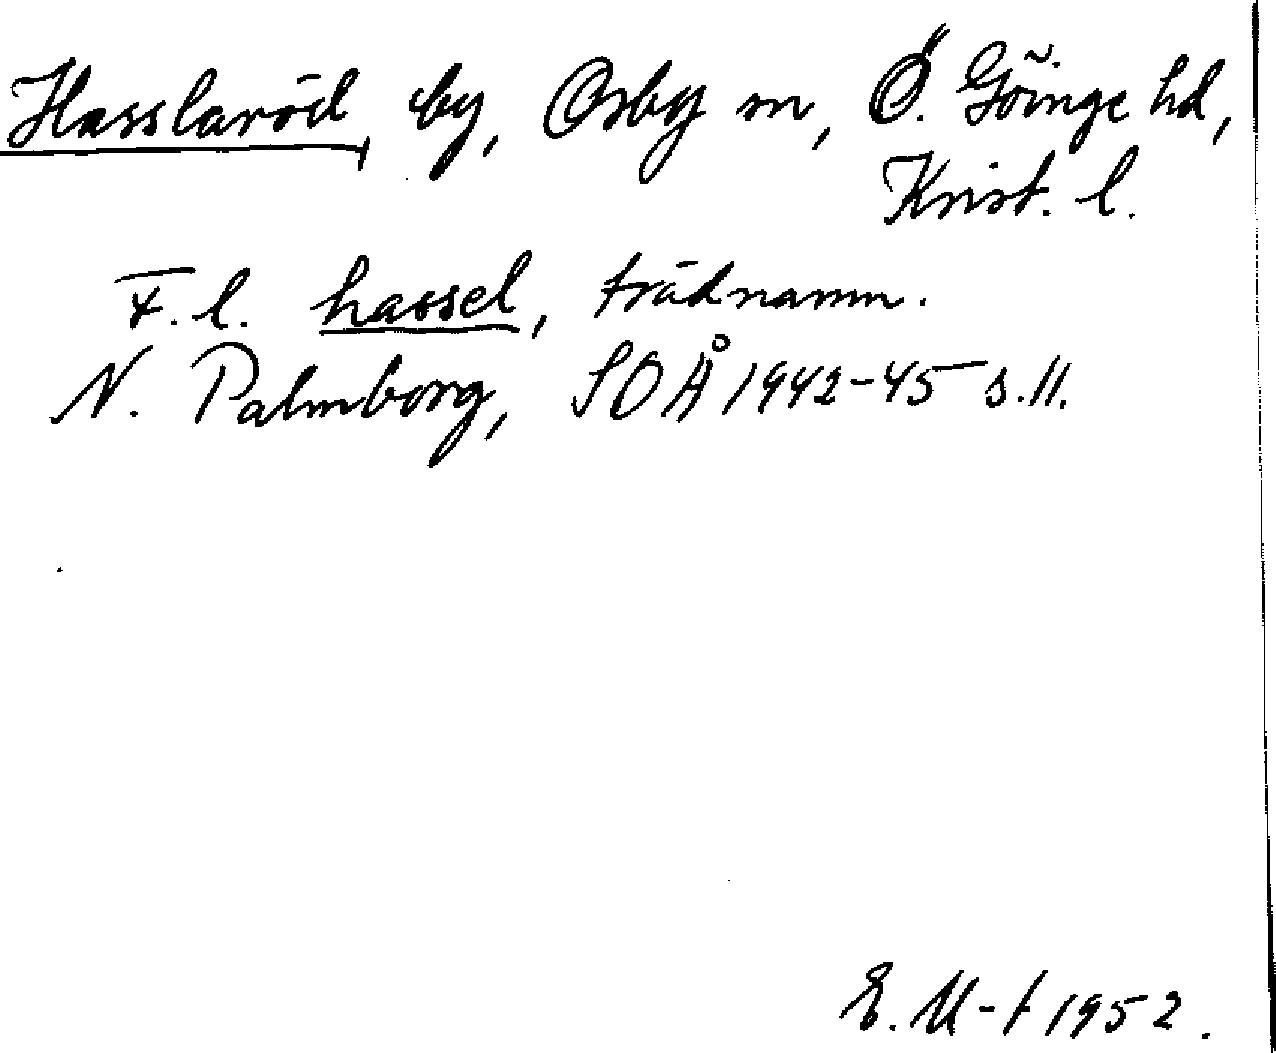 Hasslaröd, by, Osby sn, Ö. Göinge hd,
Krist. l.
F.l. hassel, trädnamn.
N. Palmborg, SOÅ 1942-45 s.11.
E. M-t 1952.